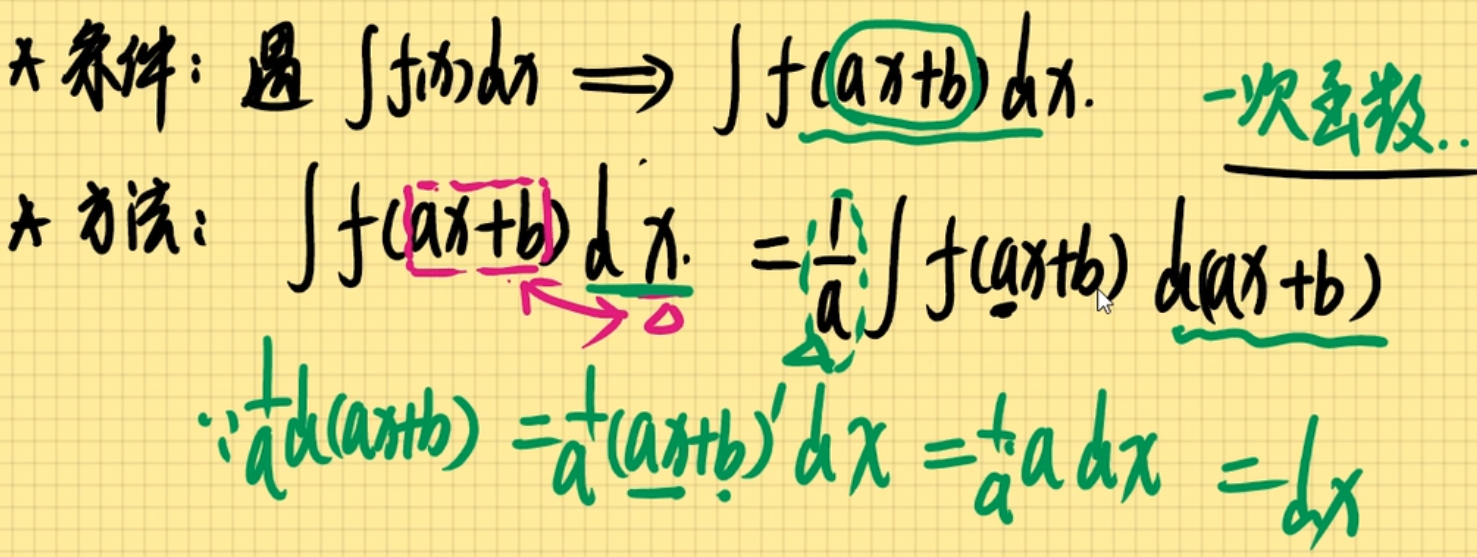 * 条件: 遇 ∫f(x)dx ⟹ ∫f(ax+b)dx. 一次函数..
* 方法: ∫f(ax+b)dx. = 1/a ∫f(ax+b) d(ax+b)
∵ 1/a d(ax+b) = 1/a (ax+b)' dx = 1/a a dx = dx